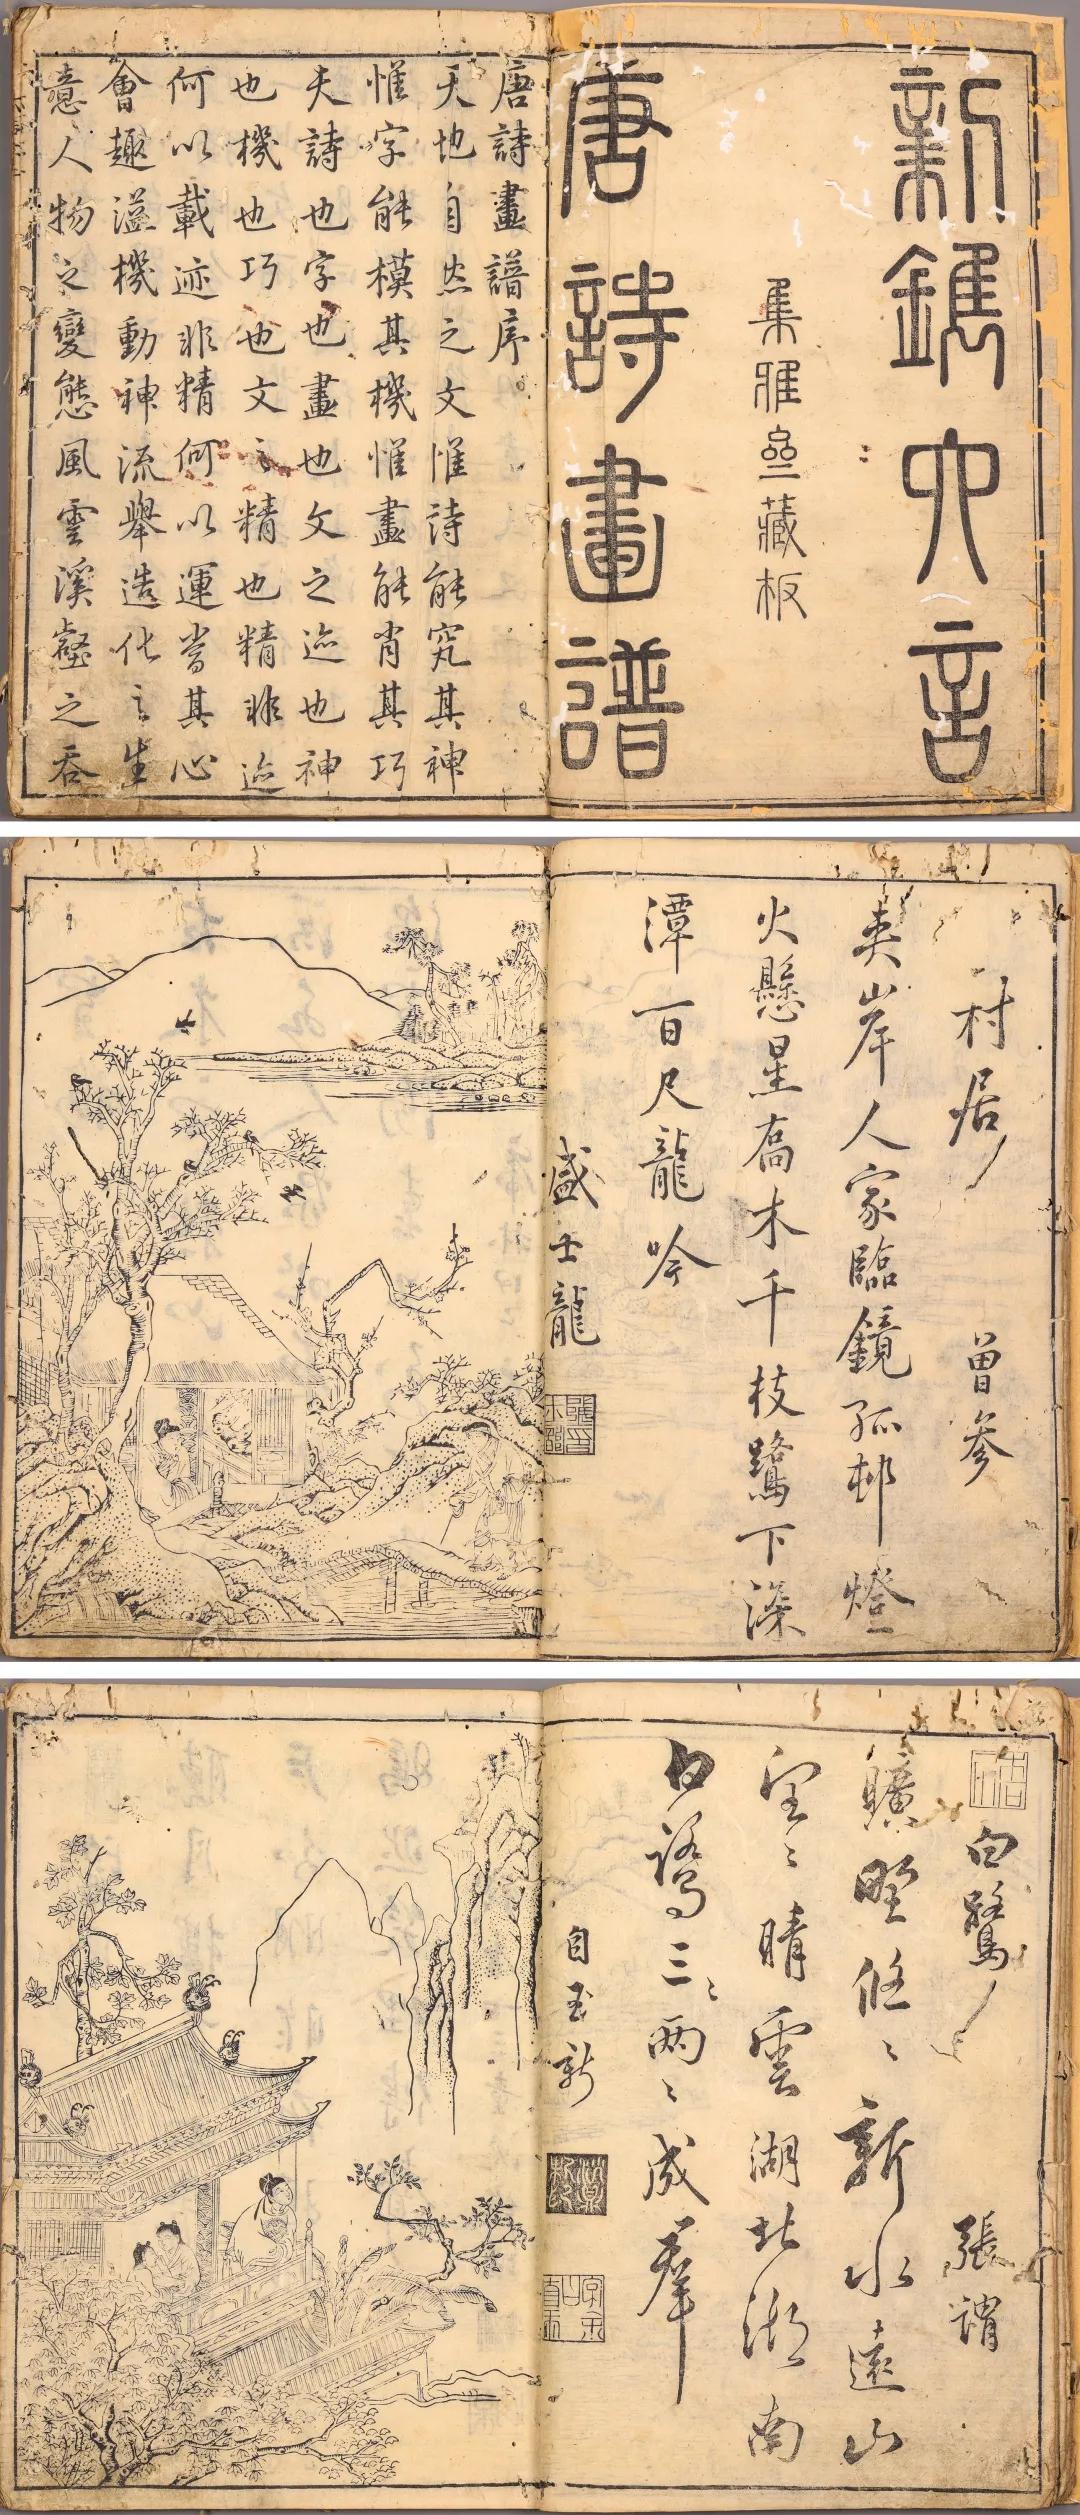 新鐫六言
集雅齋藏板
唐詩畫譜
唐詩畫譜序
天地自然之文惟詩能究其神
惟字能模其機惟畫能肖其巧
夫詩也字也畫也文之迹也神
也機也巧也文之精也精非迹
何以載迹非精何以運當其心
會趣溢機動神流舉造化之生
意人物之變態風雲溪壑之吞
村居 曾參
夾岸人家臨鏡孤邨燈
火懸星喬木千枝鷺下深
潭百尺龍吟
盛士龍
白鷺 張謂
曠野悠〻新水遠山
空〻晴雲湖北湖南
白鷺三〻兩〻成羣